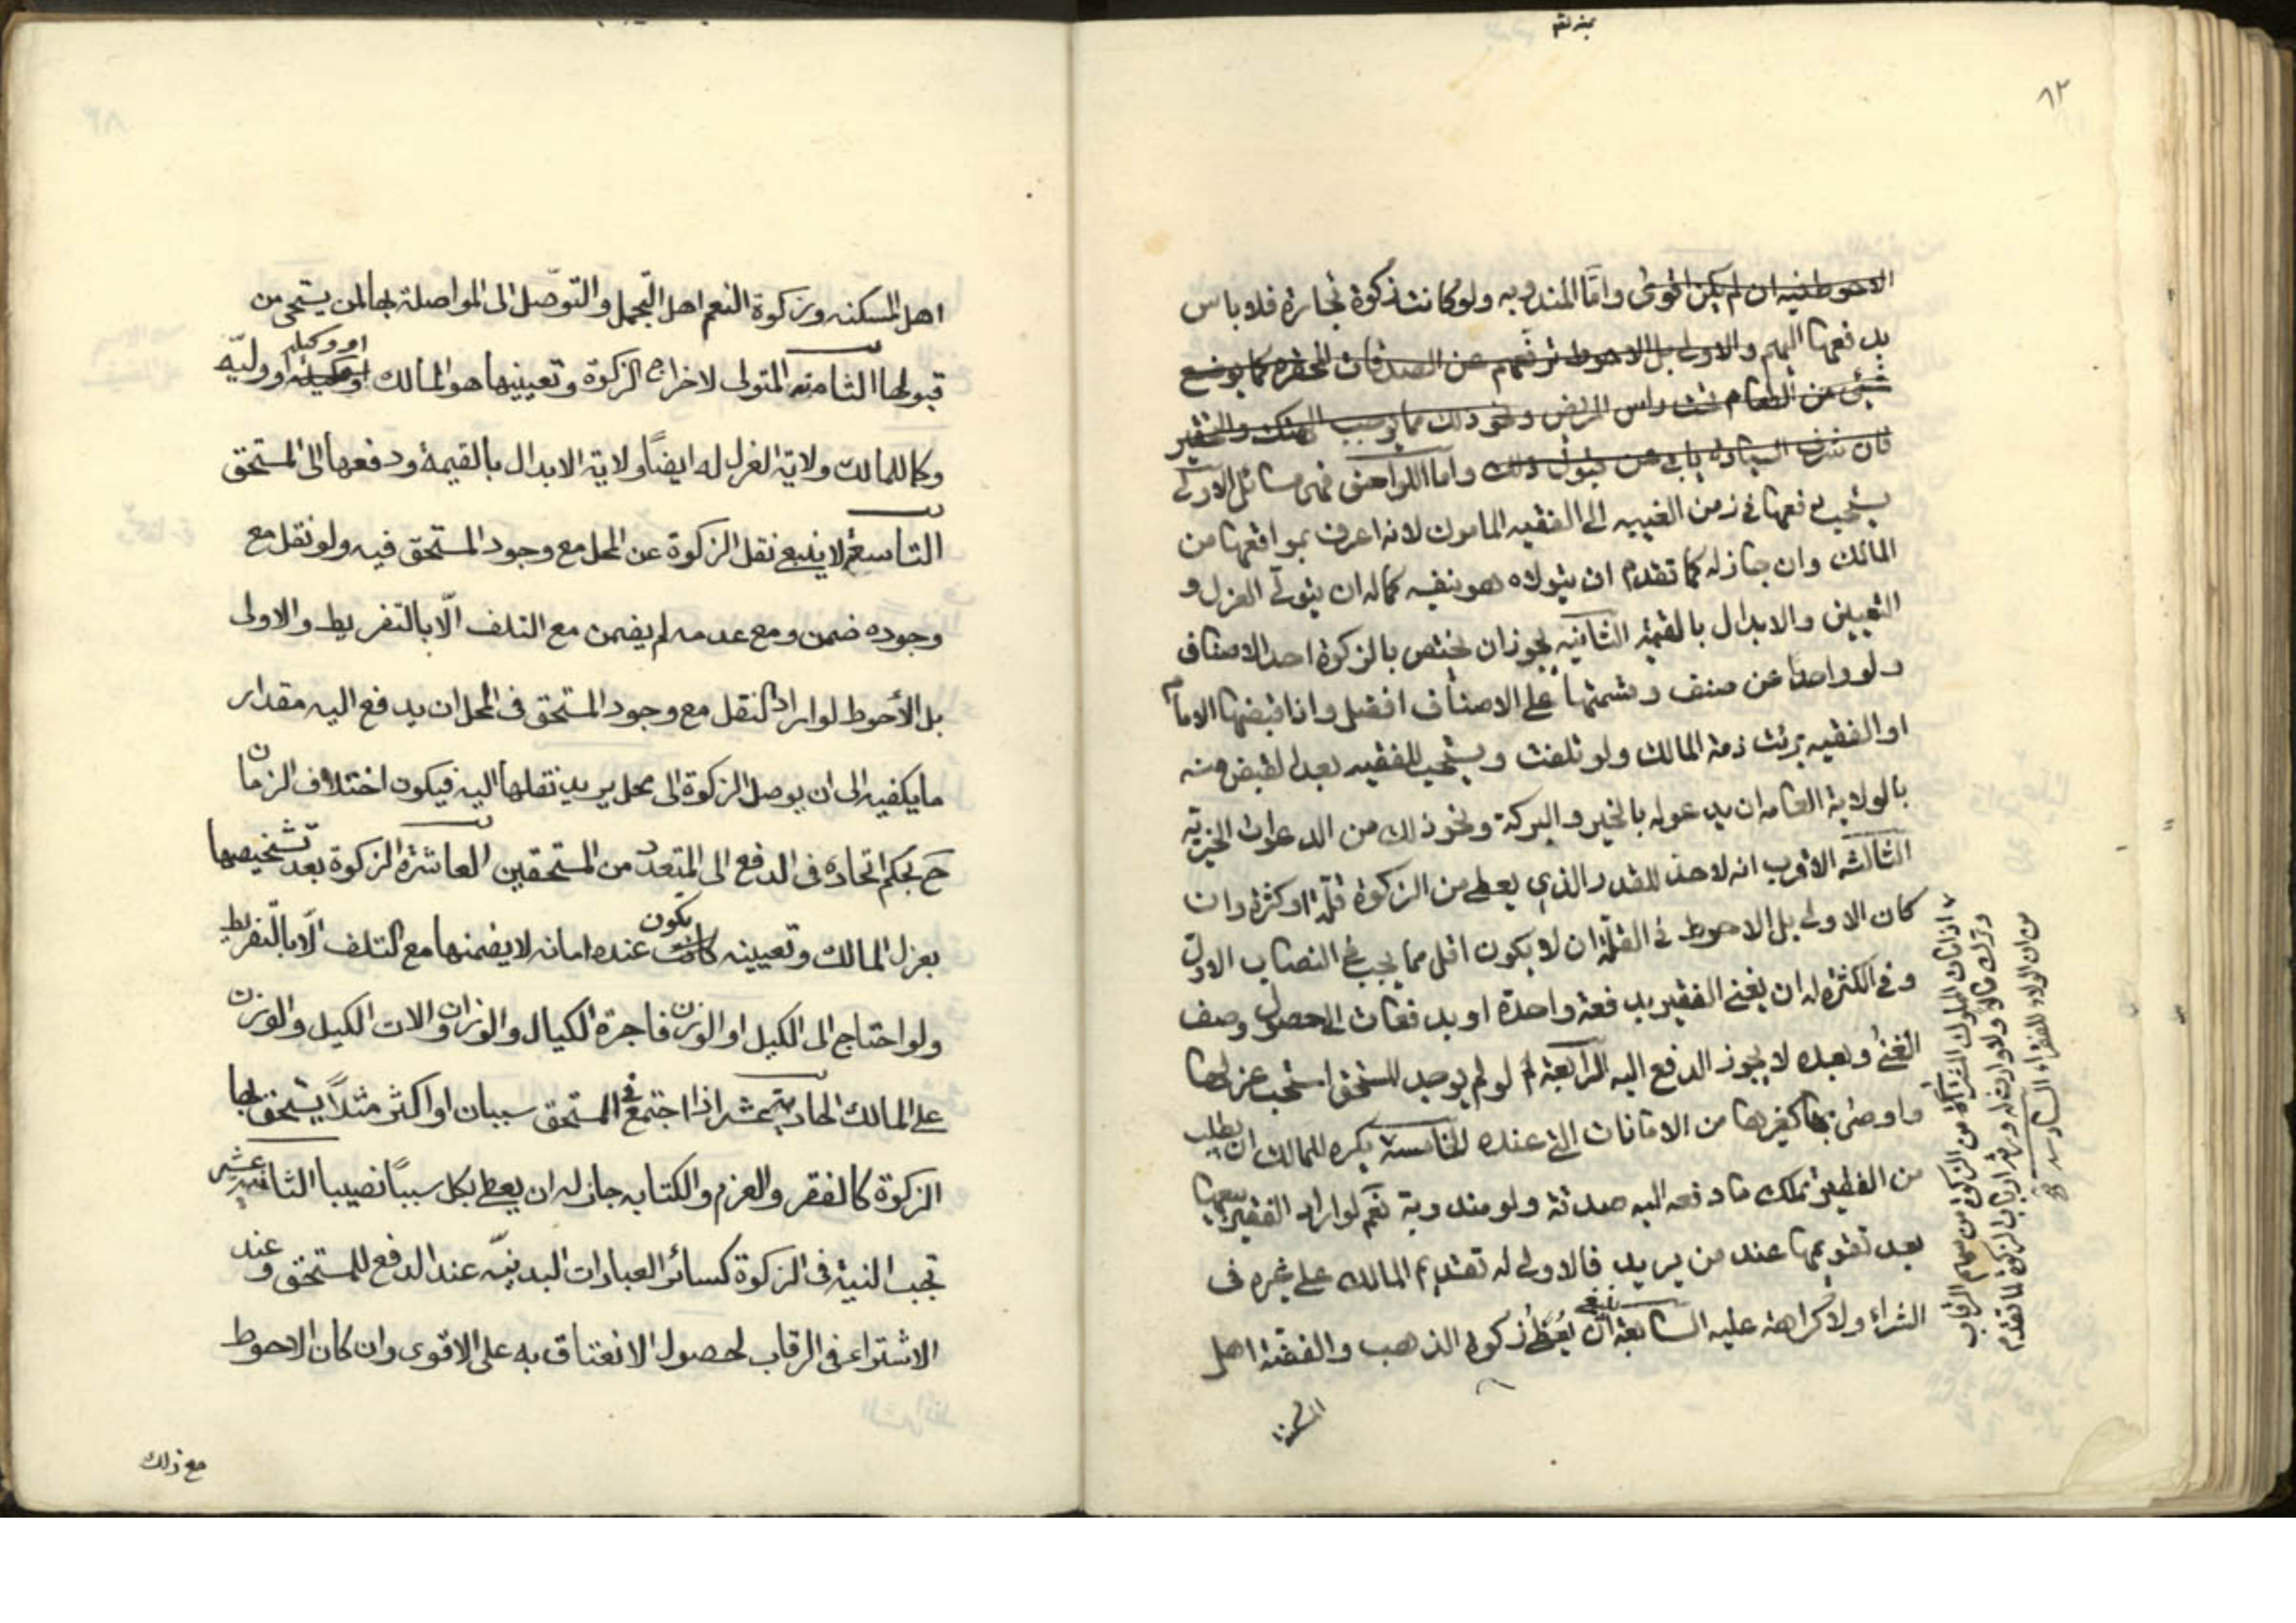 ٨٢
الاحوط فيه ان لم يكن اقوى واما المندوبه ولو كانت زكوة تجارة فلا باس
بدفعها اليهم والاولى بل الاحوط ترفعهم عن الصدقات المحقره كما يوضع
شئ من الطعام تحت راس المريض ونحو ذلك مما يوجب الهتك والتحقير
فان شرف السيادة يابى عن قبول ذلك واما اللواحق فهى مسائل الاولى
يستحب دفعها فى زمن الغيبه الى الفقيه المامون لانه اعرف بمواقعها من
المالك وان جاز له كما تقدم ان يتولاه هو بنفسه كما له ان يتولى العزل و
التعيين والابدال بالقيمة الثانيه يجوز ان يختص بالزكوة احد الاصناف
ولو واحدا من صنف وقسمتها على الاصناف افضل واذا قبضها الامام
او الفقيه برئت ذمة المالك ولو تلفت ويستحب للفقيه بعد القبض منه
بالولاية العامه ان يدعو له بالخير والبركة ونحو ذلك من الدعوات الخيرية
الثالثه الاقرب انه لا حد للقدر الذي يعطى من الزكوة قلة او كثرة وان
كان الاولى بل الاحوط فى القلة ان لا يكون اقل مما يجب فى النصاب الاول
وفى الكثرة له ان يغنى الفقير بدفعة واحدة او بدفعات الى حصول وصف
الغنى وبعده لا يجوز الدفع اليه الرابعة لو لم يوجد المستحق استحب عزلها
واوصى بها كغيرها من الامانات التى عنده الخامسة يكره للمالك ان يطلب
من الفقير تملك ما دفعه اليه صدقة ولو مندوبة نعم لو اراد الفقير بيعها
بعد تقويمها عند من يريد فالاولى له تقديم المالك على غيره فى
الشراء ولا كراهة عليه السابعة ينبغى ان يعطى زكوة الذهب والفضة اهل
المسكنة
اذا مات المملوك المشتراة من الزكوة من سهام الرقاب
وترك مالا ولا وارث له ورثه ارباب الزكوة لما تقدم
من ان الولاء للفقراء السادسة
اهل المسكنه وزكوة النعم اهل التجمل والتوصل الى المواصلة بها لمن يستحى من
قبولها الثامنه المتولى لاخراج الزكوة وتعيينها هو المالك او وكيله او وليّه
وكما للمالك ولاية العزل له ايضاً ولاية الابدال بالقيمة ودفعها الى المستحق
التاسعة لا ينبغى نقل الزكوة عن المحل مع وجود المستحق فيه ولو نقل مع
وجوده ضمن ومع عدمه لم يضمن مع التلف الّا بالتفريط والاولى
بل الأحوط لو اراد النقل مع وجود المستحق فى المحل ان يدفع اليه مقدار
ما يكفيه الى ان يوصل الزكوة الى محل يريد نقلها اليه فيكون اختلاف الزمان
ح بحكم اتحاده فى الدفع الى المتعدد من المستحقين العاشرة الزكوة بعد تشخيصها
بعزل المالك وتعيينه تكون عنده امانه لا يضمنها مع التلف الّا بالتّفريط
ولو احتاج الى الكيل او الوزن فاجرة الكيال والوزان والات الكيل والوزن
على المالك الحادية عشر اذا اجتمع فى المستحق سببان او اكثر مثلاً يستحق بها
الزكوة كالفقر والغرم والكتابه جاز له ان يعطى بكل سبباً نصيبا الثانيه عشر
تجب النية فى الزكوة كسائر العبادات البدنيّه عند الدفع للمستحق وعند
الاشتراء فى الرقاب لحصول الانعتاق به على الاقوى وان كان الاحوط
مع ذلك